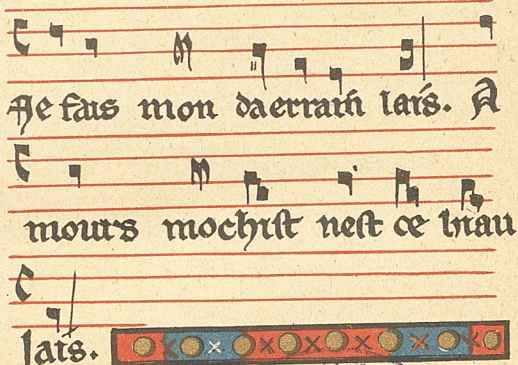 Je fais mon daerrain lais. A
mours mochist nest ce biau
lais.